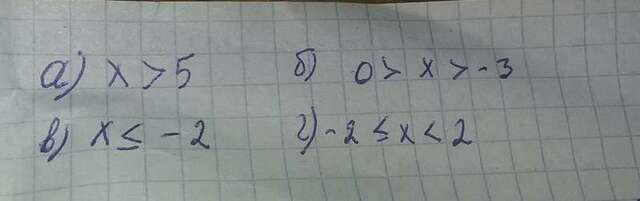 а) x > 5 б) 0 > x > -3
в) x ≤ -2 г) -2 ≤ x < 2